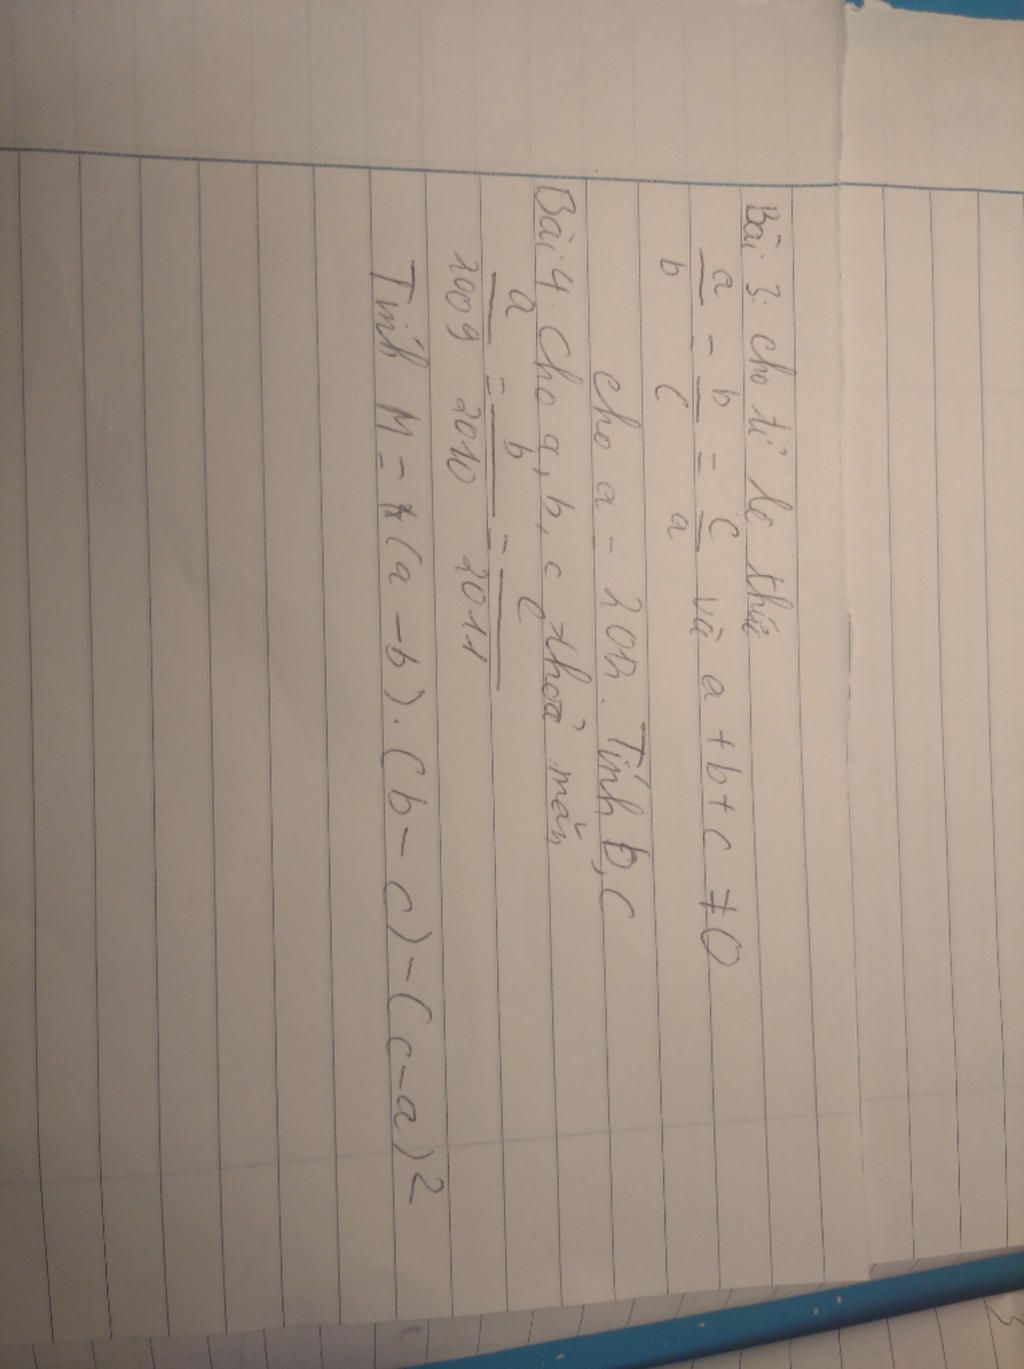 Bài 3. cho tỉ lệ thức
a/b = b/c = c/a và a + b + c ≠ 0
cho a = 2012. Tính b, c
Bài 4. Cho a, b, c thoả mãn
a/2009 = b/2010 = c/2011
Tính M = 4(a - b).(b - c) - (c - a)2